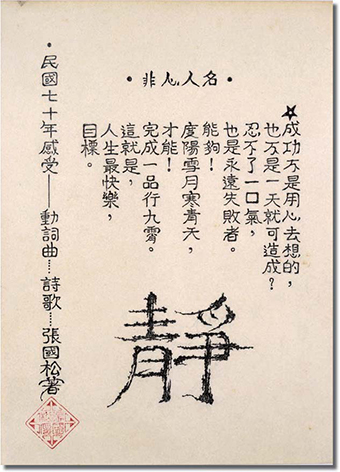 •名人心非•
★成功不是用心去想的，
也不是一天就可造成？
忍不了一口氣，
也是永遠失敗者。
能夠！
度陽雪月寒青天，
才能！
完成一品行九霄。
這就是，
人生最快樂，
目標。
靜
•民國七十年感受——動詞曲……詩歌……張國松著